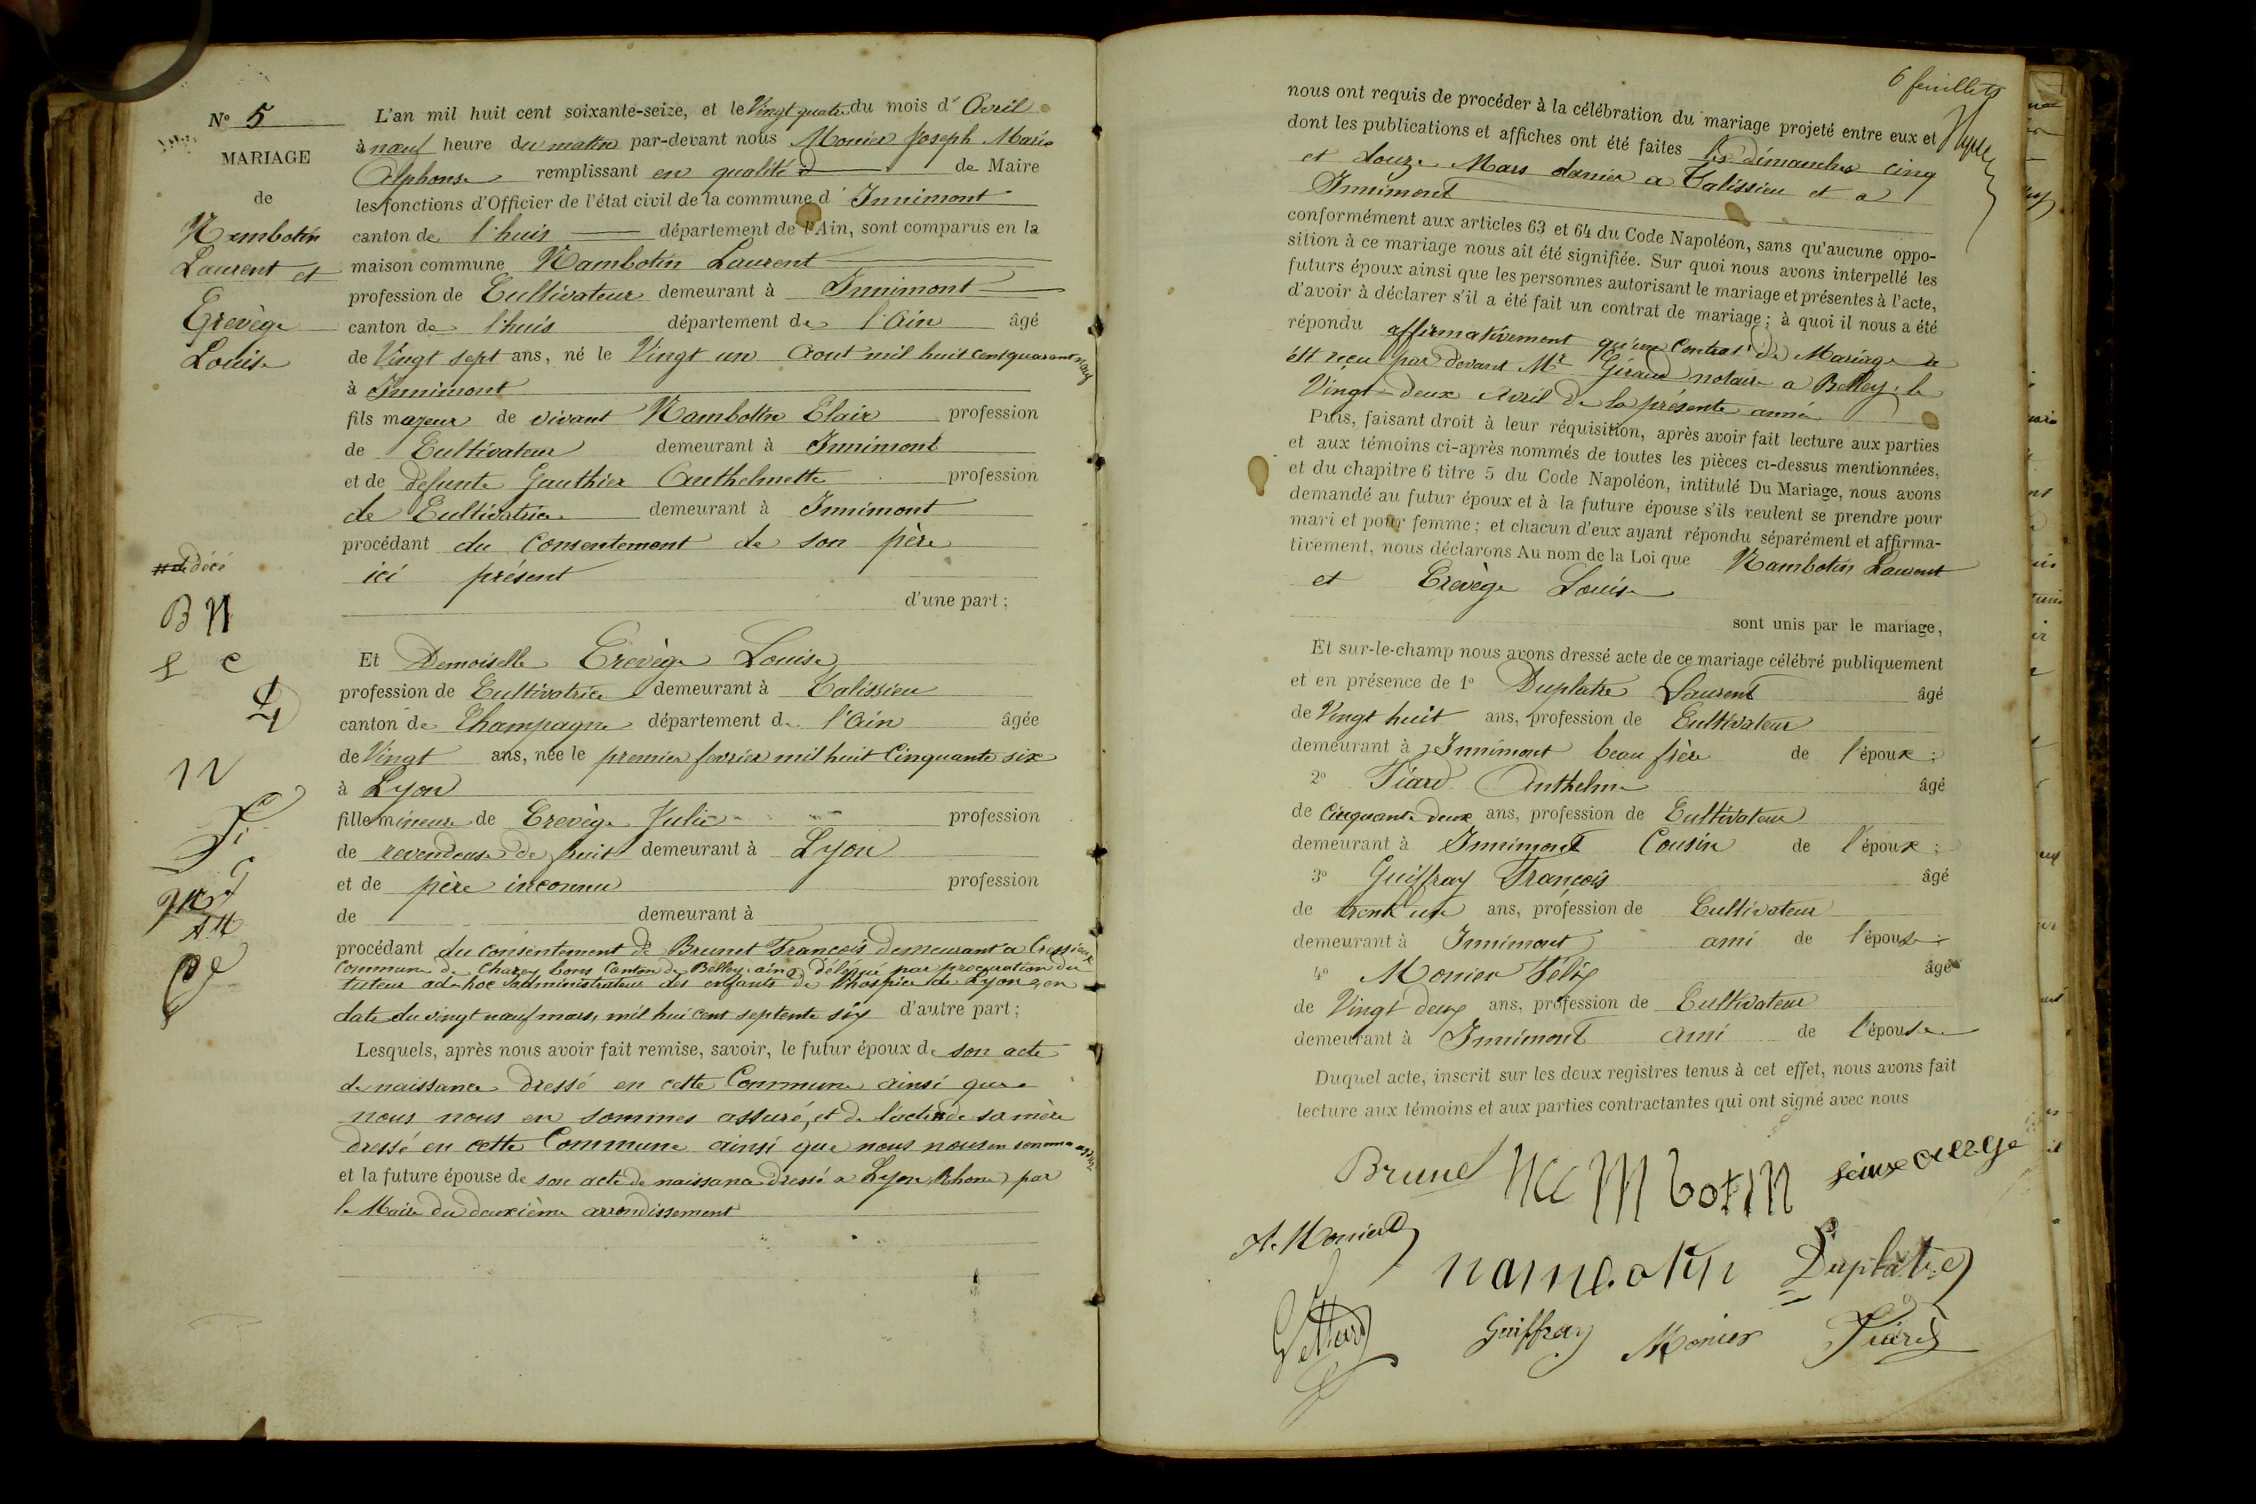 N° 5
MARIAGE
de
Nambotin
Laurent et
Crevège
Louise
L'an mil huit cent soixante-seize, et le Vingt quatre du mois d' Avril
à neuf heure du matin par-devant nous Monier Joseph Marie
Alphonse remplissant en qualité d de Maire
les fonctions d'Officier de l'état civil de la commune d' Innimont
canton de l'huis département de l'Ain, sont comparus en la
maison commune Nambotin Laurent
profession de Cultivateur demeurant à Innimont
canton de l'huis département de l'Ain âgé
de Vingt sept ans, né le Vingt un Aout mil huit cent quarante neuf
à Innimont
fils majeur de vivant Nambotin Clair profession
de Cultivateur demeurant à Innimont
et de défunte Gauthier Anthelmette profession
de Cultivatrice demeurant à Innimont
procédant du consentement de son père
ici présent
d'une part ;
Et Demoiselle Crevège Louise
profession de Cultivatrice demeurant à Talissieu
canton de Champagne département de l'Ain âgée
de Vingt ans, née le premier fevrier mil huit Cinquante six
à Lyon
fille mineure de Crevège Julie profession
de revendeuse de fruit demeurant à Lyon
et de père inconnu profession
de demeurant à
procédant du consentement de Brunet François demeurant a Cressieux
Commune de Chazey bons Canton de Belley, ain, Délégué par procuration du
tuteur ad-hoc administrateur des enfants de l'hospice de Lyon, en
date du vingt neuf mars, mil hui cent septente six d'autre part ;
Lesquels, après nous avoir fait remise, savoir, le futur époux de son acte
de naissance dressé en cette Commune ainsi que
nous nous en sommes assuré, et de l'acte de sa mère
dressé en cette Commune ainsi que nous nous en sommes assuré
et la future épouse de son acte de naissance dressé a Lyon, Rhone) par
le Maire du deuxième arrondissement
décé
B N
L C
6 feuillets
nous ont requis de procéder à la célébration du mariage projeté entre eux et
dont les publications et affiches ont été faites les dimanches cinq
et douze Mars dernier a Talissieu et a
Innimont
conformément aux articles 63 et 64 du Code Napoléon, sans qu'aucune oppo-
sition à ce mariage nous ait été signifiée. Sur quoi nous avons interpellé les
futurs époux ainsi que les personnes autorisant le mariage et présentes à l'acte,
d'avoir à déclarer s'il a été fait un contrat de mariage ; à quoi il nous a été
répondu affirmativement qu'un Contrat de Mariage a
étt reçu par devant Mr Giraud notaire a Belley, le
Vingt-deux Avril de la présente année
Puis, faisant droit à leur réquisition, après avoir fait lecture aux parties
et aux témoins ci-après nommés de toutes les pièces ci-dessus mentionnées,
et du chapitre 6 titre 5 du Code Napoléon, intitulé Du Mariage, nous avons
demandé au futur époux et à la future épouse s'ils veulent se prendre pour
mari et pour femme ; et chacun d'eux ayant répondu séparément et affirma-
tivement, nous déclarons Au nom de la Loi que Nambotin Laurent
et Crevège Louise
sont unis par le mariage,
Et sur-le-champ nous avons dressé acte de ce mariage célébré publiquement
et en présence de 1° Duplatre Laurent âgé
de Vingt huit ans, profession de Cultivateur
demeurant à Innimont beau frère de l'époux ;
2° Tiard Anthelme âgé
de Cinquante deux ans, profession de Cultivateur
demeurant à Innimont Cousin de l'époux ;
3° Guiffray François âgé
de trente un ans, profession de Cultivateur
demeurant à Innimont ami de l'épouse ;
4° Monier Félix âgé
de Vingt deux ans, profession de Cultivateur
demeurant à Innimont Ami de l'épouse
Duquel acte, inscrit sur les deux registres tenus à cet effet, nous avons fait
lecture aux témoins et aux parties contractantes qui ont signé avec nous
Brunet Nambotin
A. Monier
nambotin Duplatre
Guiffray Monier Tiard